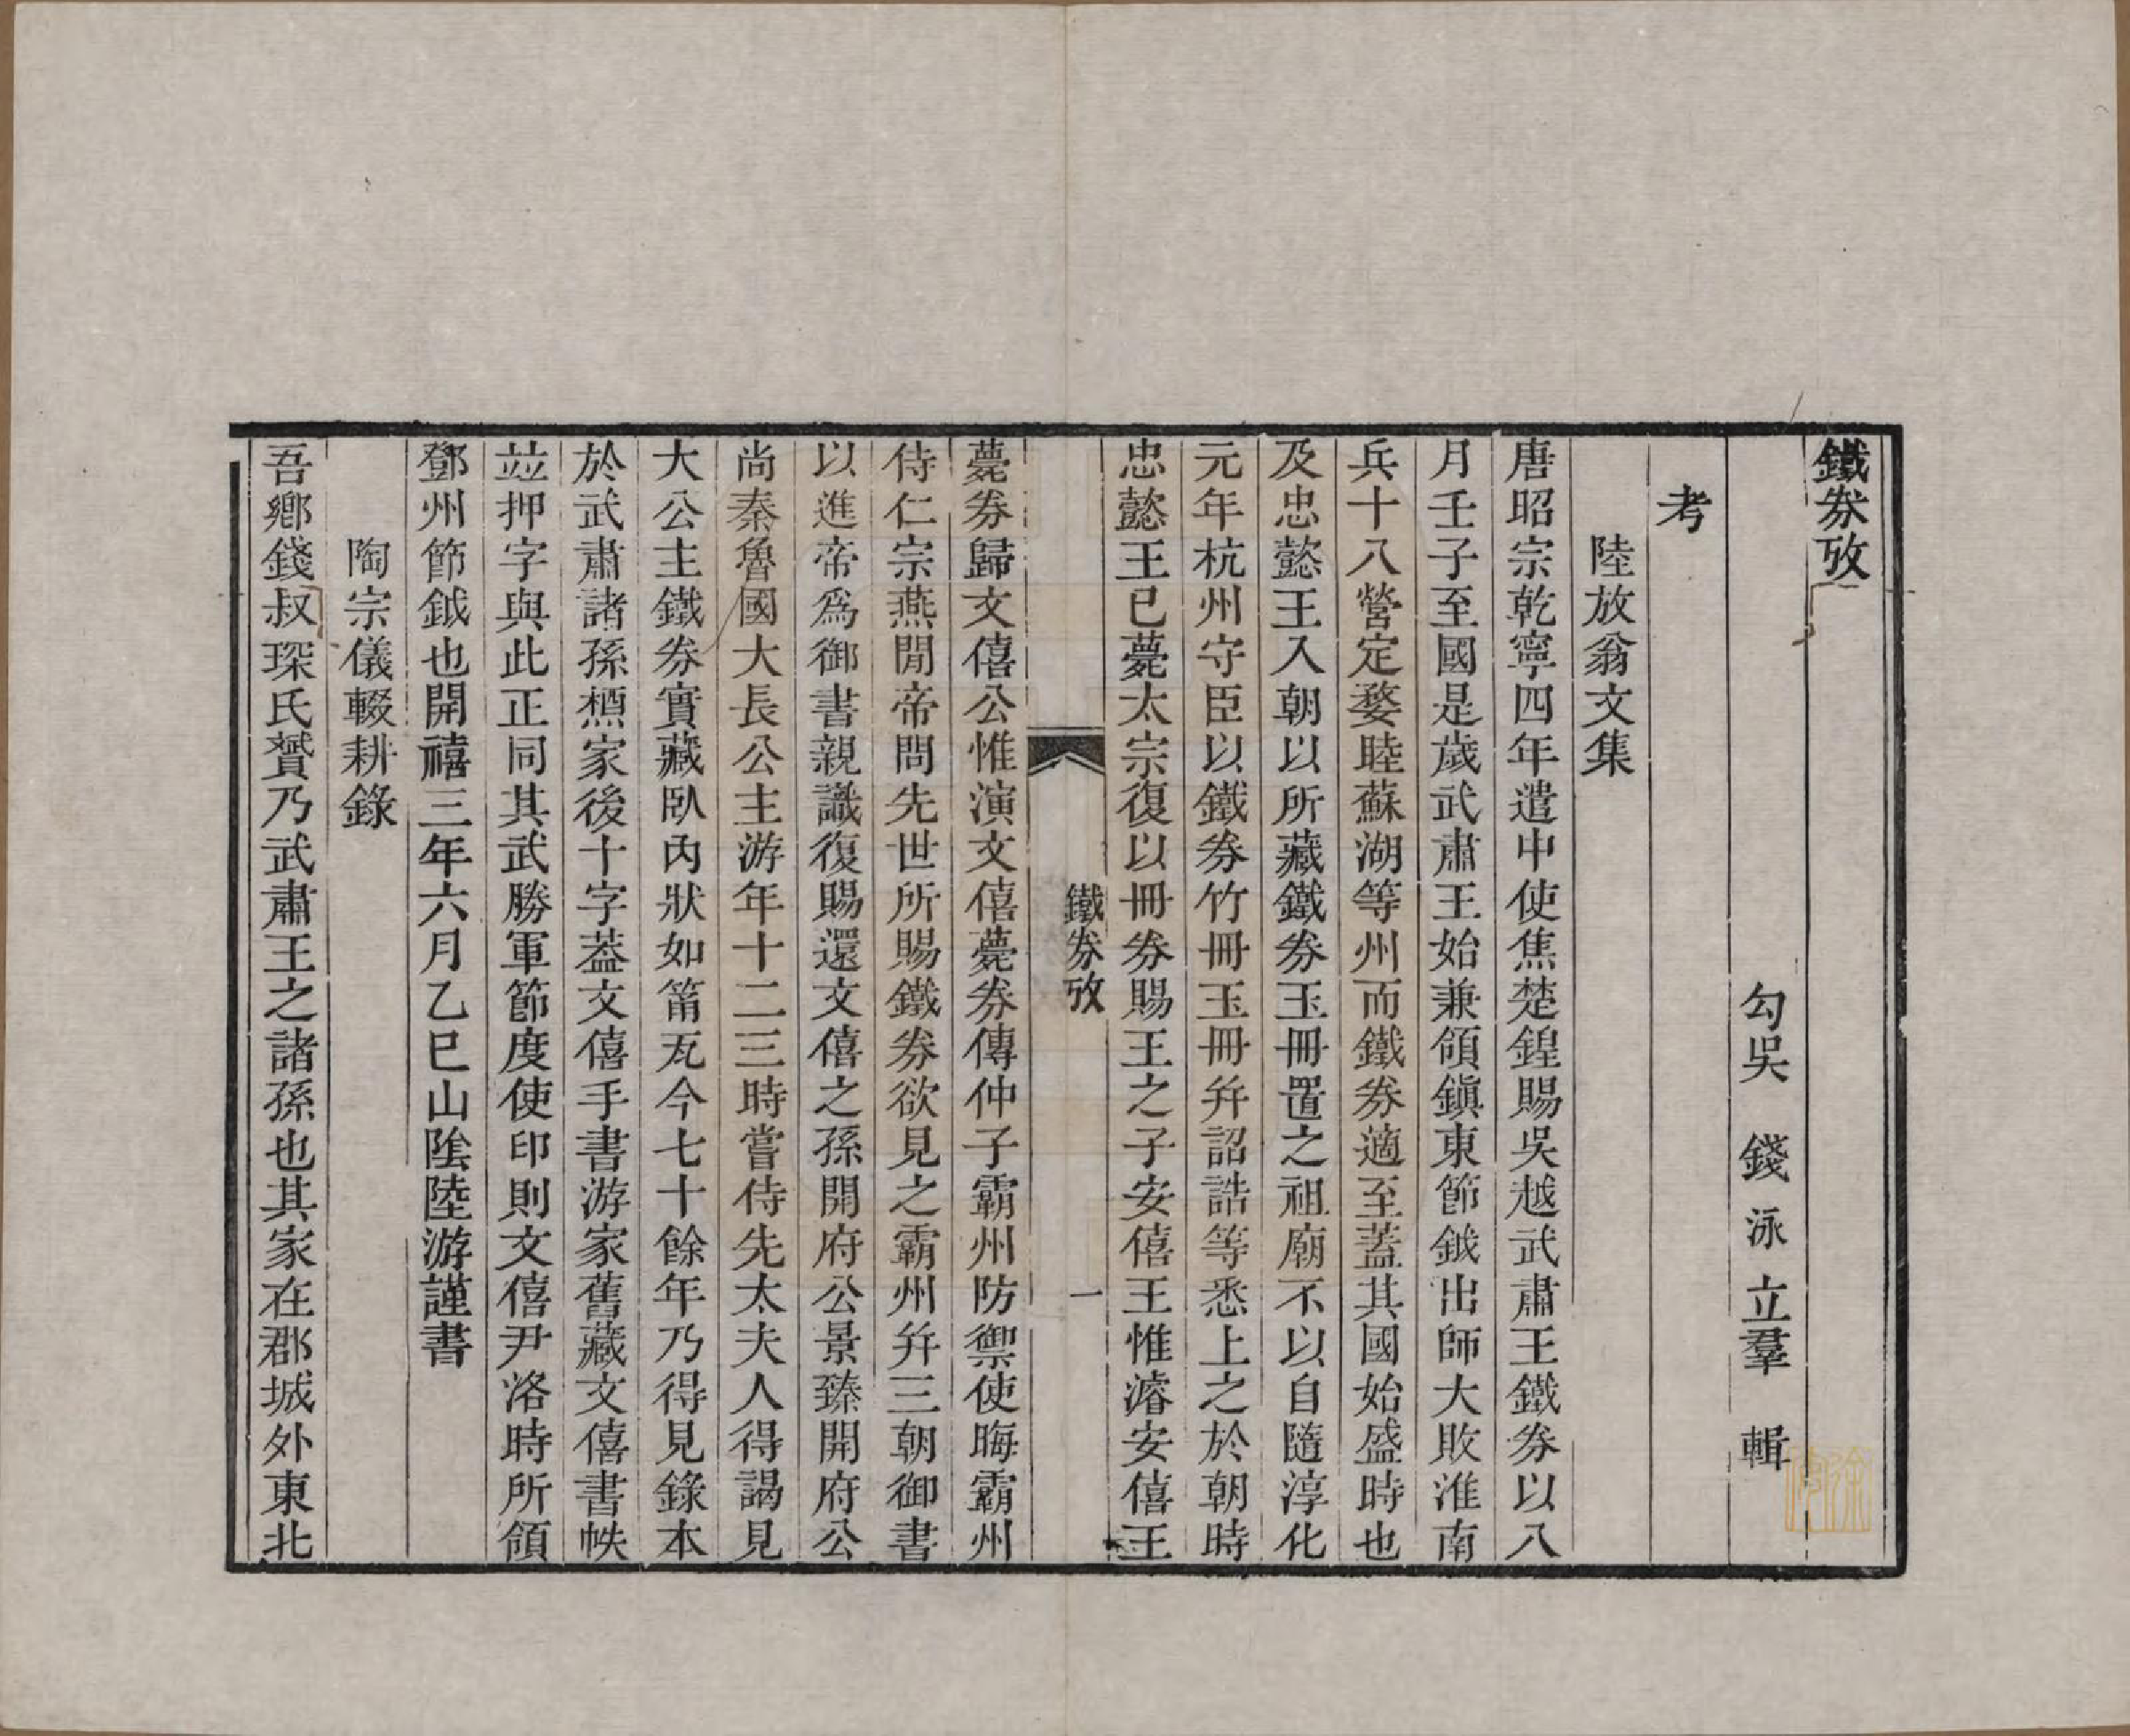 鐵券攷
勾吳　錢泳立羣　輯
考
陸放翁文集
唐昭宗乾寧四年遣中使焦楚鍠賜吳越武肅王鐵券以八
月壬子至國是歲武肅王始兼領鎭東節鉞出師大敗淮南
兵十八營定婺睦蘇湖等州而鐵券適至蓋其國始盛時也
及忠懿王入朝以所藏鐵券玉冊置之祖廟不以自隨淳化
元年杭州守臣以鐵券竹冊玉冊幷詔誥等悉上之於朝時
忠懿王已薨太宗復以冊券賜王之子安僖王惟濬安僖王
鐵券攷　一
薨券歸文僖公惟演文僖薨券傳仲子霸州防禦使晦霸州
侍仁宗燕閒帝問先世所賜鐵券欲見之霸州幷三朝御書
以進帝爲御書親識復賜還文僖之孫開府公景臻開府公
尚秦魯國大長公主游年十二三時嘗侍先太夫人得謁見
大公主鐵券實藏臥內狀如筩瓦今七十餘年乃得見錄本
於武肅諸孫槱家後十字葢文僖手書游家舊藏文僖書帙
竝押字與此正同其武勝軍節度使印則文僖尹洛時所領
鄧州節鉞也開禧三年六月乙巳山陰陸游謹書
陶宗儀輟耕錄
吾鄉錢叔琛氏贇乃武肅王之諸孫也其家在郡城外東北